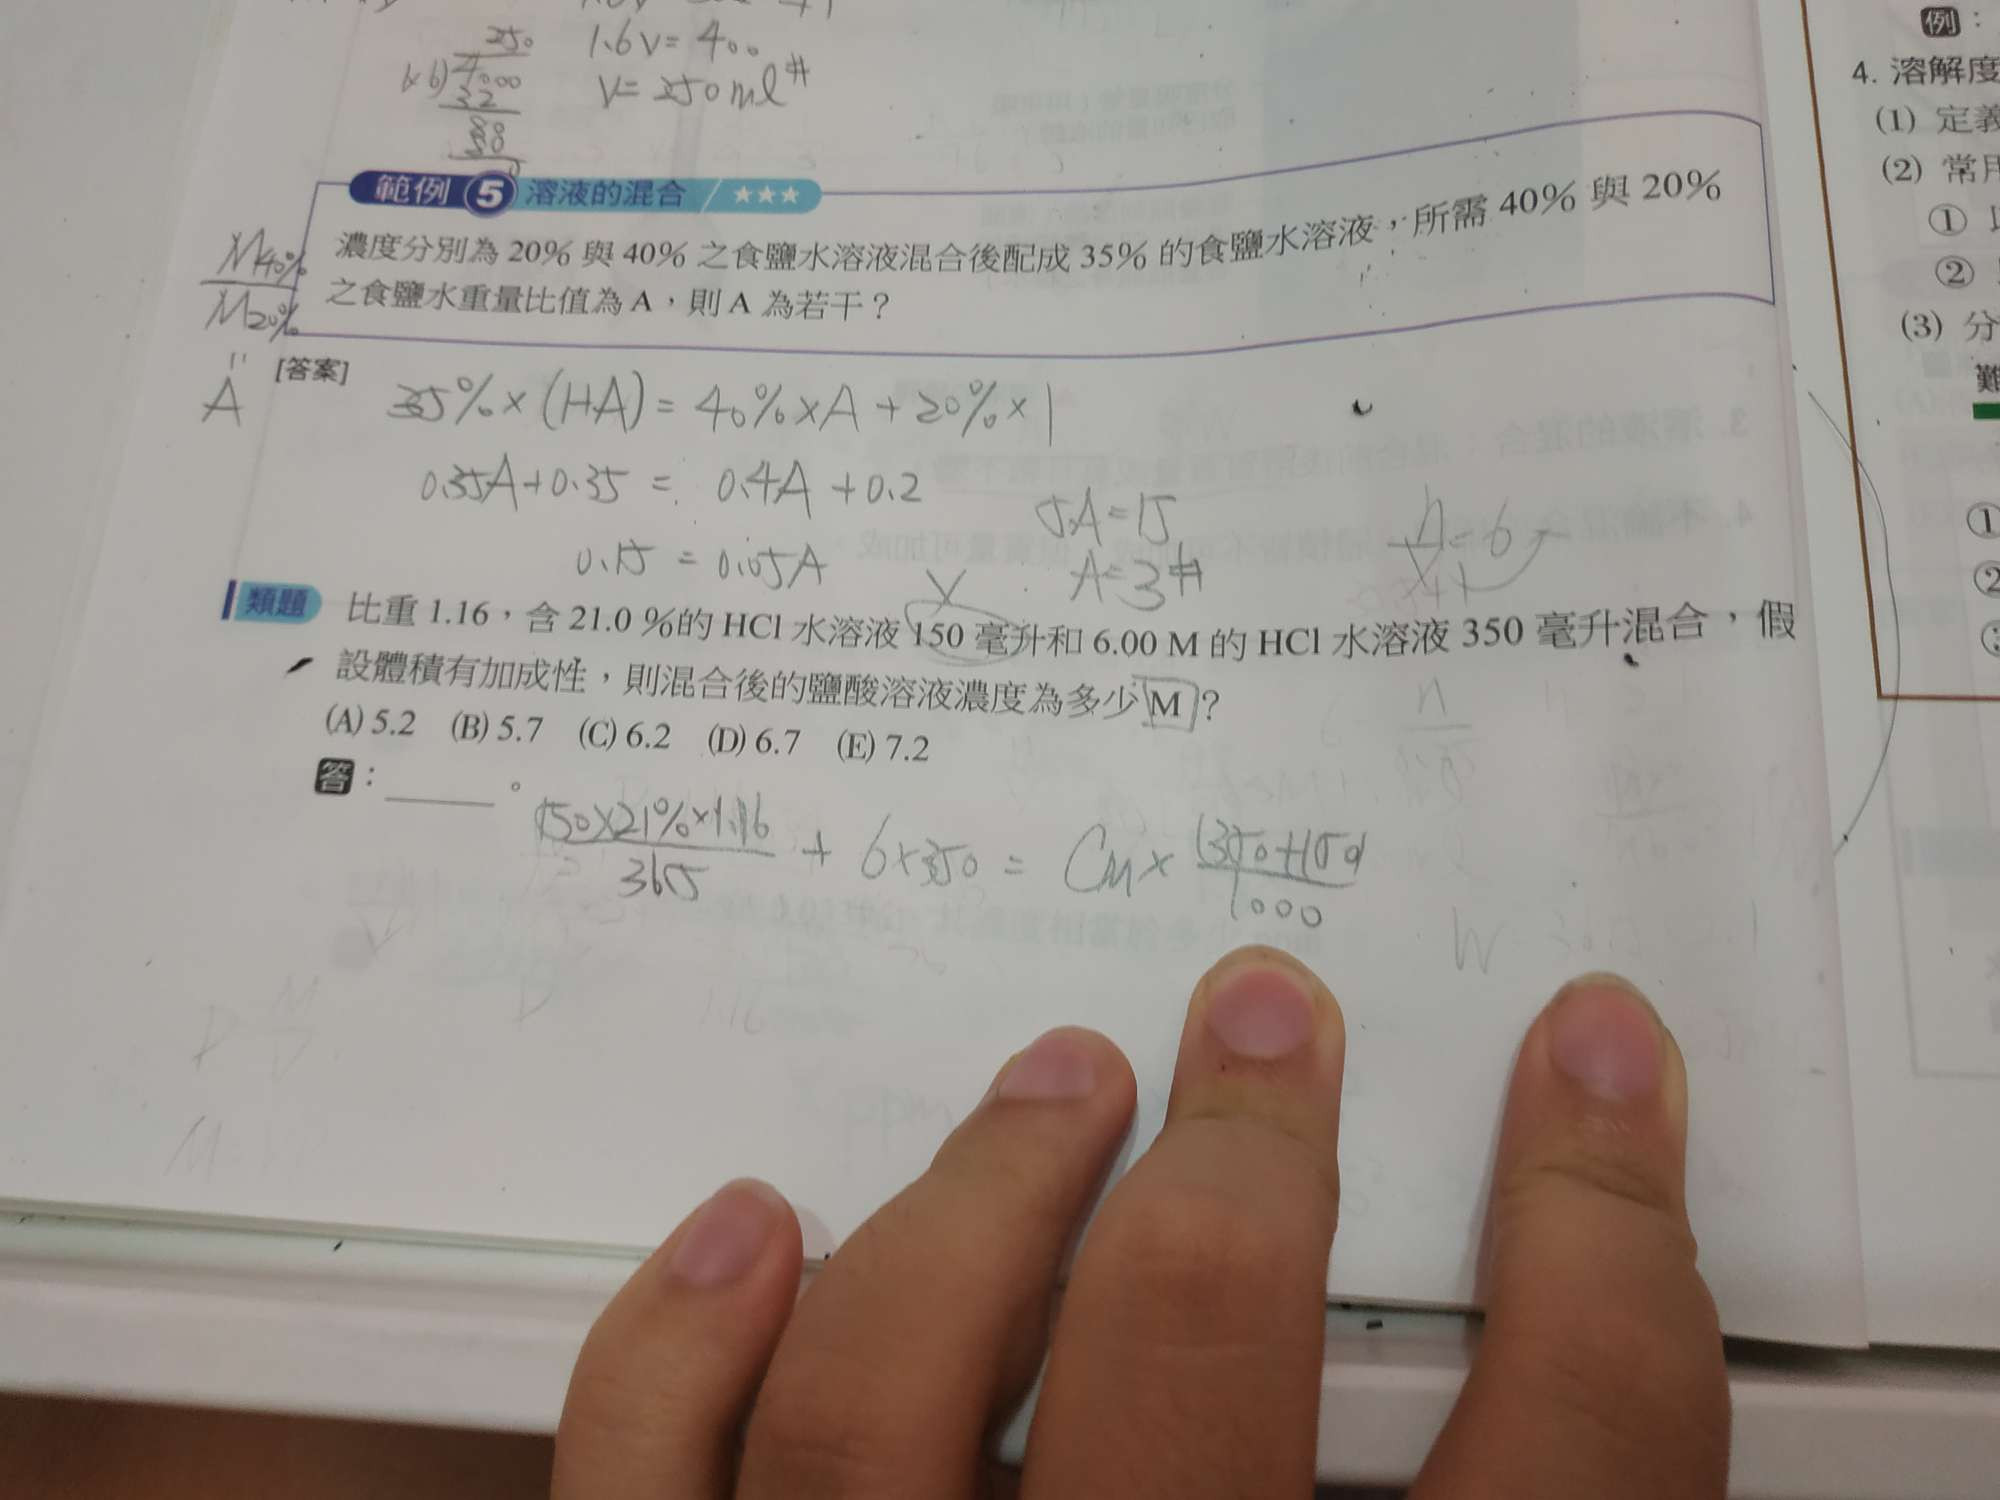 250
1.6V = 400
4000
V = 250ml#
32
80
80
0
範例 5 溶液的混合 ★★★
濃度分別為 20% 與 40% 之食鹽水溶液混合後配成 35% 的食鹽水溶液,所需 40% 與 20%
之食鹽水重量比值為 A,則 A 為若干?
M40%
M20%
A
[答案]
35% × (1+A) = 40% × A + 20% × 1
0.35A + 0.35 = 0.4A + 0.2
0.15 = 0.05A
5A = 15
A = 3#
V
類題 比重 1.16,含 21.0 %的 HCl 水溶液 150 毫升和 6.00 M 的 HCl 水溶液 350 毫升混合,假
設體積有加成性,則混合後的鹽酸溶液濃度為多少 M?
(A) 5.2 (B) 5.7 (C) 6.2 (D) 6.7 (E) 7.2
答:______。
150×21%×1.16
+ 6×350 = CM ×
350+150
365
1000
例:
4. 溶解度
(1) 定義
(2) 常用
①
②
(3) 分
難
①
②